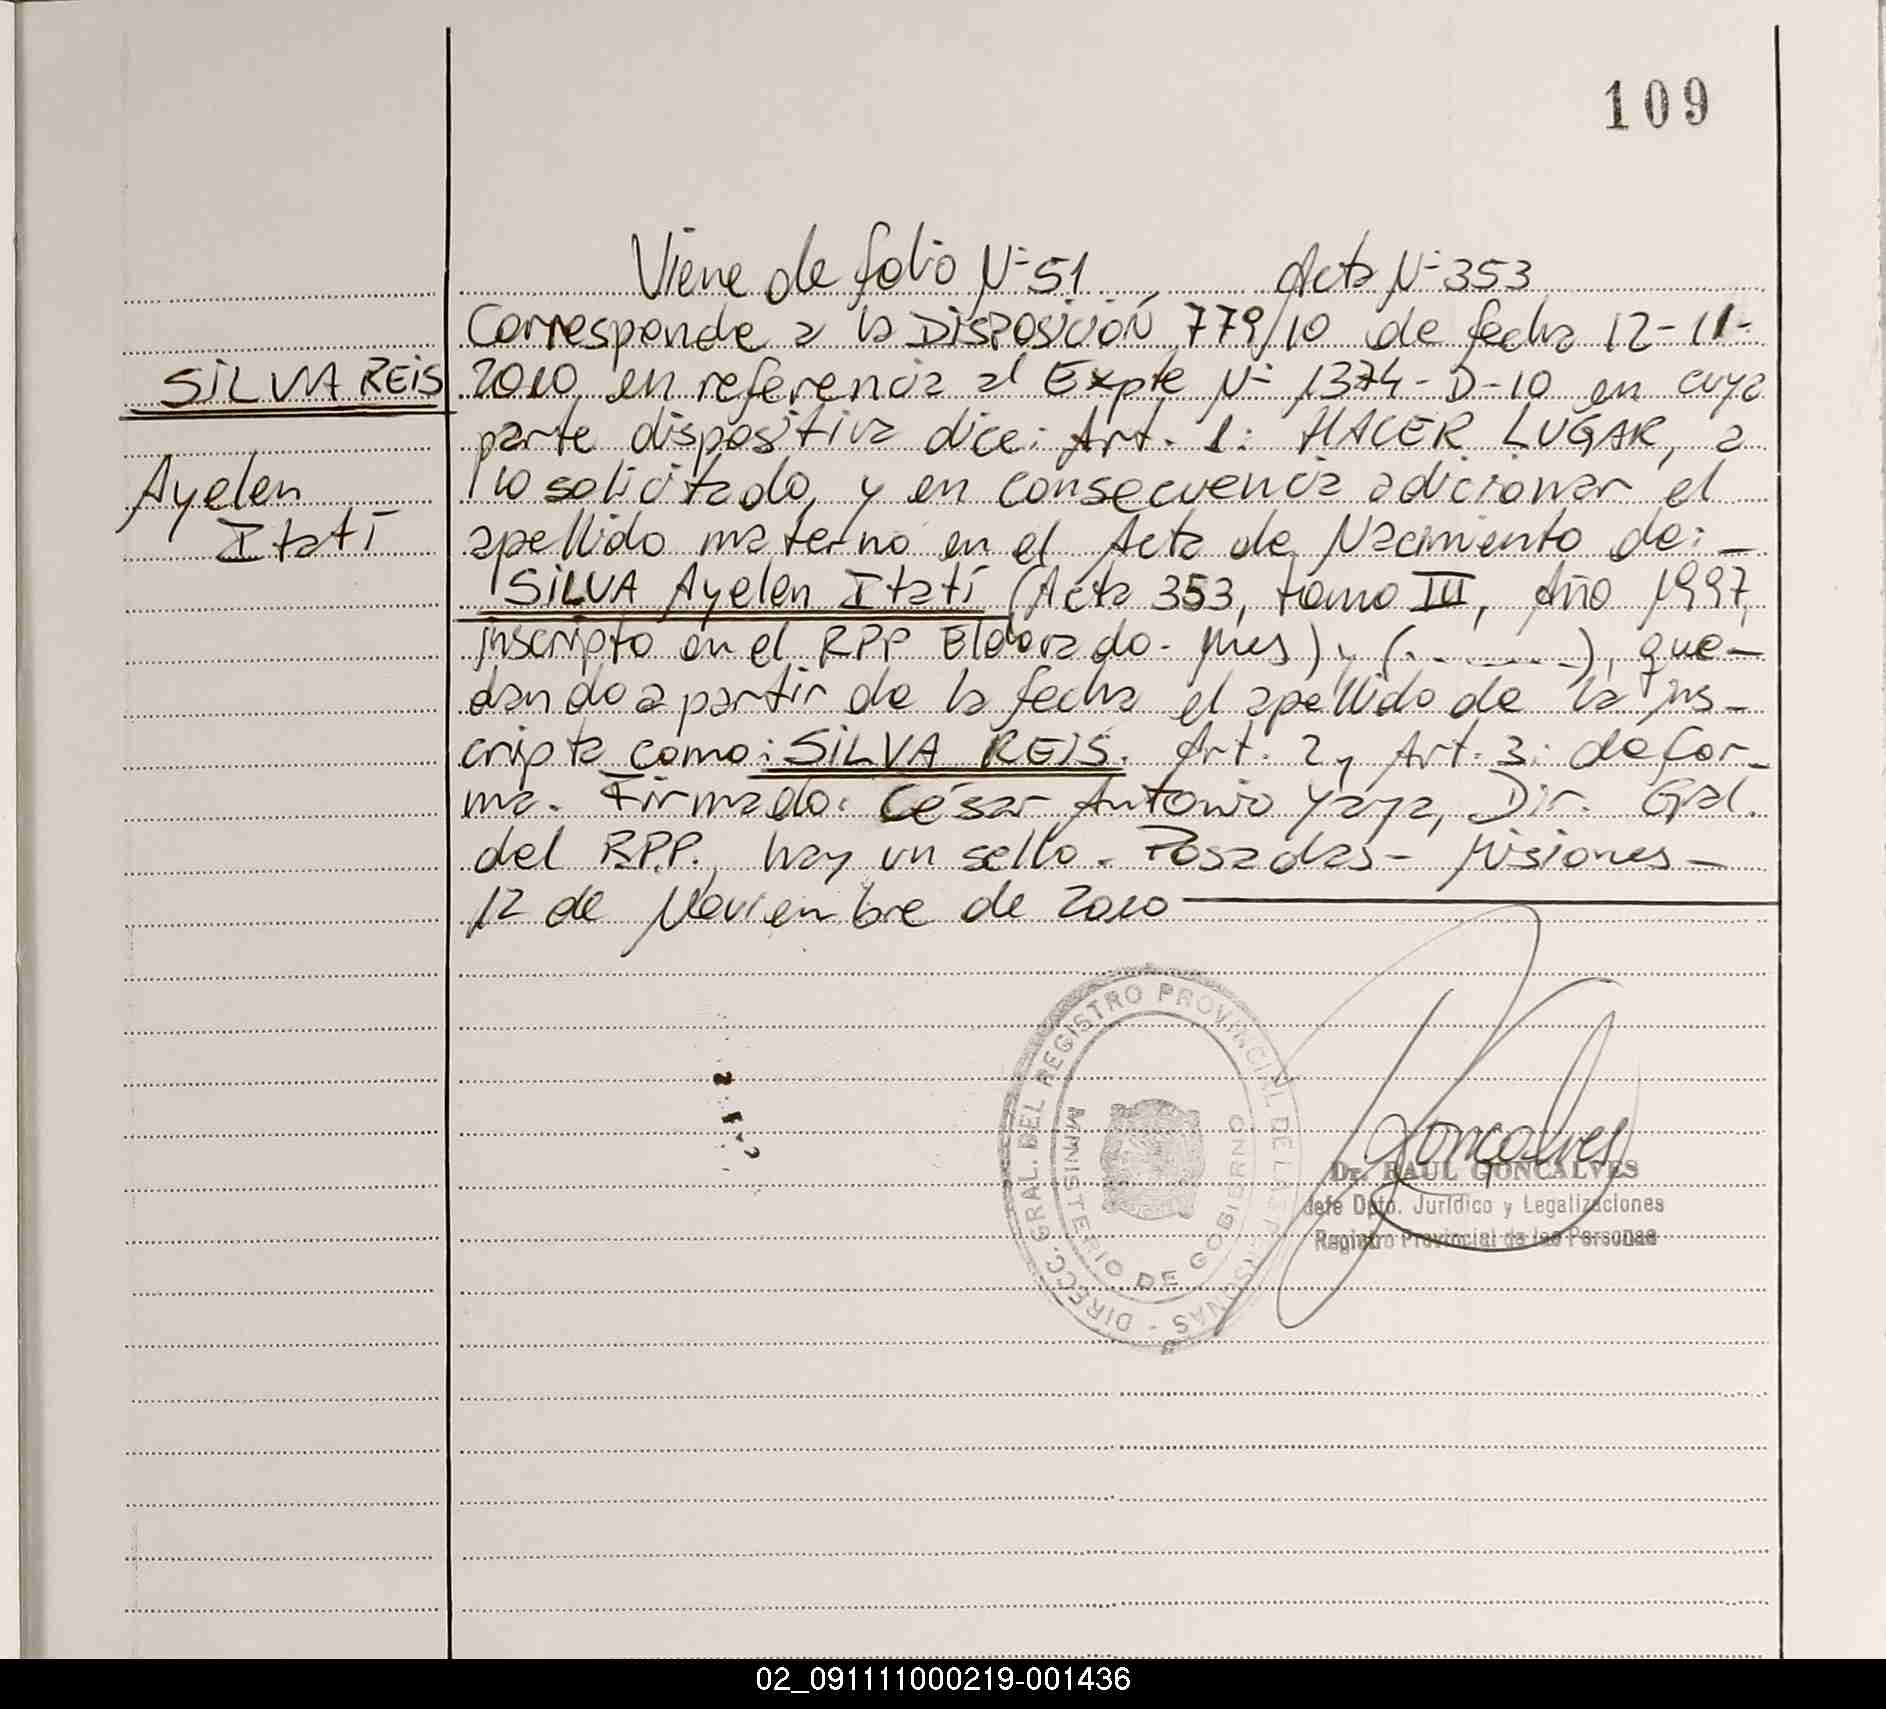 109
Viene de folio Nº 51, Acta Nº 353
Corresponde a la Disposición 779/10 de fecha 12-11-
SILVA REIS
2010, en referencia al Expte Nº 1374-D-10 en cuya
parte dispositiva dice: Art. 1: HACER LUGAR, a
Ayelen
lo solicitado, y en consecuencia adicionar el
Itatí
apellido materno en el Acta de Nacimiento de: -
SILVA Ayelen Itatí (Acta 353, tomo III, Año 1997,
inscripto en el RPP Eldorado-Mnes) y (.........), que-
dando a partir de la fecha el apellido de la ins-
cripta como: SILVA REIS. Art. 2 y Art. 3: de for-
ma. Firmado: César Antonio Yaya, Dir. Gral.
del RPP., hay un sello. Posadas - Misiones -
12 de Noviembre de 2010
DIRECC. GRAL. DEL REGISTRO PROVINCIAL DE LAS PERSONAS -
MINISTERIO DE GOBIERNO
Goncalves
Dr. RAUL GONCALVES
Jefe Dpto. Jurídico y Legalizaciones
Registro Provincial de las Personas
02_091111000219-001436